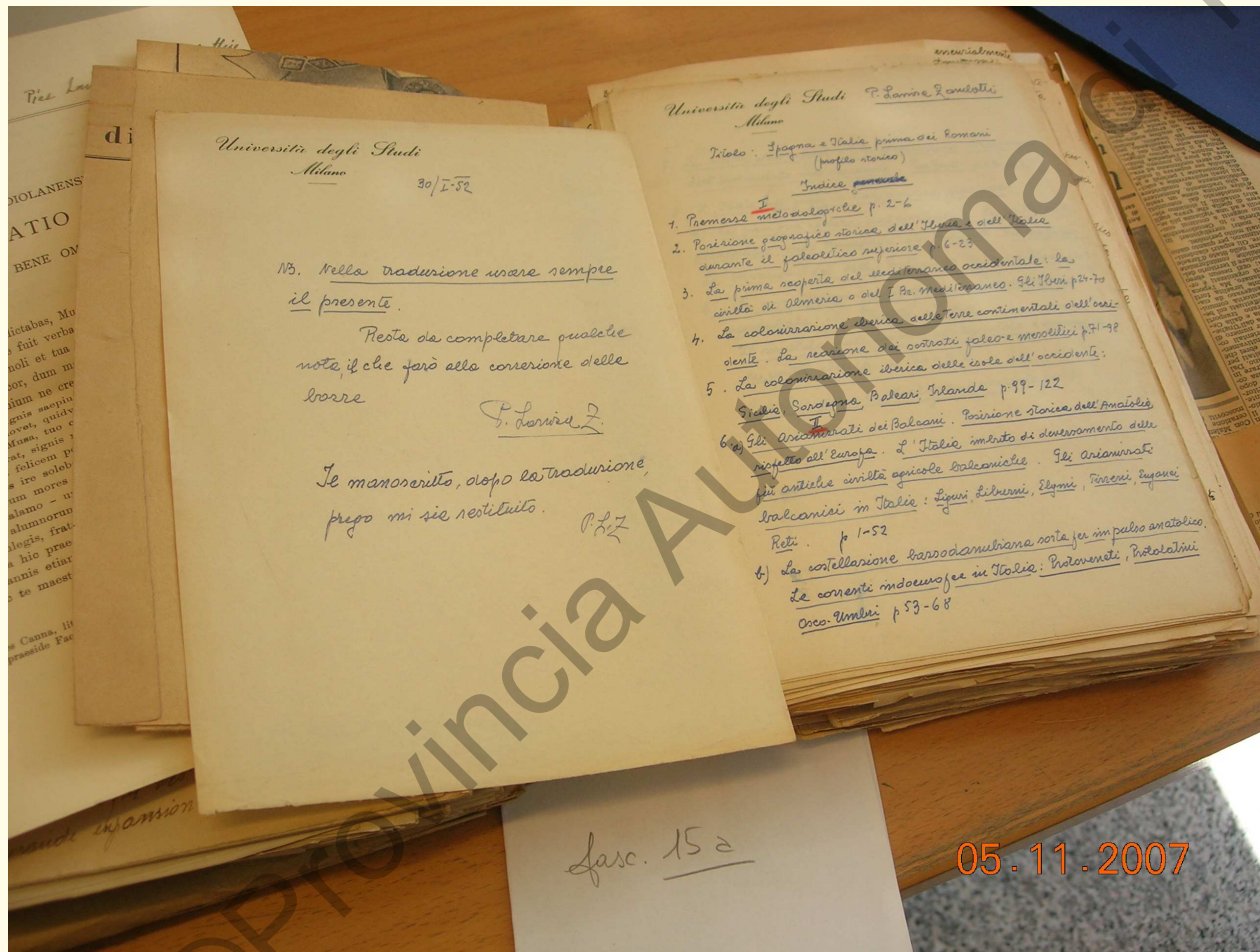 Università degli Studi
Milano
30/I-52
NB. Nella traduzione usare sempre
il presente.
Resta da completare qualche
nota, il che farò alla correzione delle
bozze
P. Laviosa Z.
Il manoscritto, dopo la traduzione,
prego mi sia restituito.
P.L.Z
Università degli Studi
Milano
P. Laviosa Zambotti
Titolo: Spagna e Italia prima dei Romani
(profilo storico)
Indice generale
I
1. Premessa metodologiche p. 2-6
2. Posizione geografico storica dell'Iberia e dell'Italia
durante il paleolitico superiore p. 6-23
3. La prima scoperta del Mediterraneo occidentale: la
civiltà di Almeria o del I Br. Mediterraneo. Gli Iberi p 24-70
4. La colonizzazione iberica delle terre continentali dell'occi-
dente. La reazione dei sostrati paleo e mesolitici p. 71-98
5. La colonizzazione iberica delle isole dell'occidente:
Sicilia, Sardegna, Baleari, Irlanda p. 99-122
II
6.a) Gli Asianizzati dei Balcani. Posizione storica dell'Anatolia
rispetto all'Europa. L'Italia imbuto di deversamento delle
più antiche civiltà agricole balcaniche. Gli Asianizzati
balcanici in Italia: Liguri, Liburni, Elymi, Tirreni, Euganei
Reti. p 1-52
b) La costellazione bassodanubiana sorta per impulso anatolico.
Le correnti indoeuropee in Italia: Protoveneti, Protolatini
Osco-Umbri p 53-68
fasc. 15 a
05.11.2007
di
DIOLANENS
ATIO
BENE OM
dictabas, Mu
fuit verba
moli et tua
cor, dum m
nium ne cre
felicem p
ire soleb
rum mores
alamo - u
alumnorum
legis, frat
hic prae
annis etiam
te maest
Canna, lit
praeside Fac
essenzialmente
Provincia Autonoma di